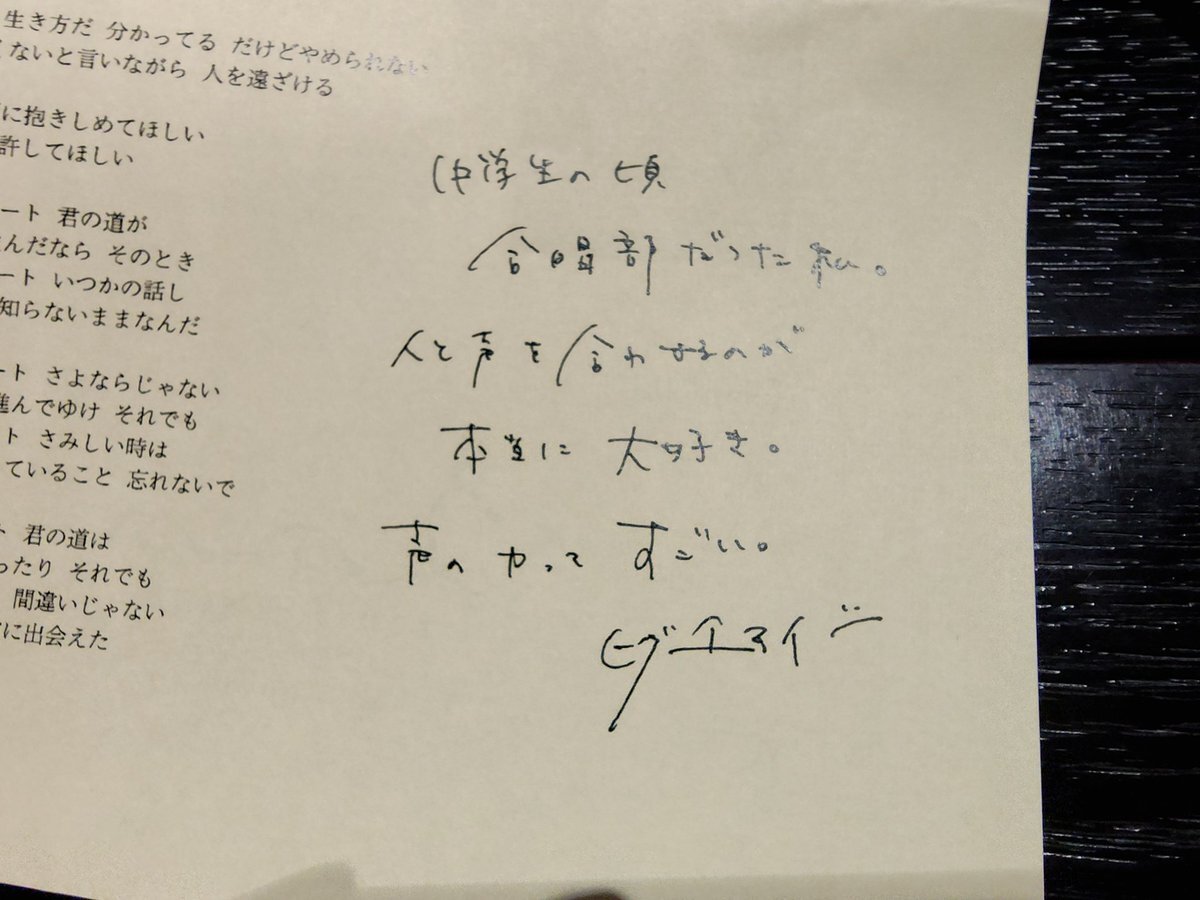 生き方だ 分かってる だけどやめられない
ないと言いながら 人を遠ざける
に抱きしめてほしい
許してほしい
ート 君の道が
んだなら そのとき
ート いつかの話し
知らないままなんだ
ート さよならじゃない
進んでゆけ それでも
ト さみしい時は
っていること 忘れないで
ト 君の道は
ったり それでも
間違いじゃない
に出会えた
中学生の頃
合唱部だった私。
人と声を合わせるのが
本当に 大好き。
声の力って すごい。
ヒグチアイ